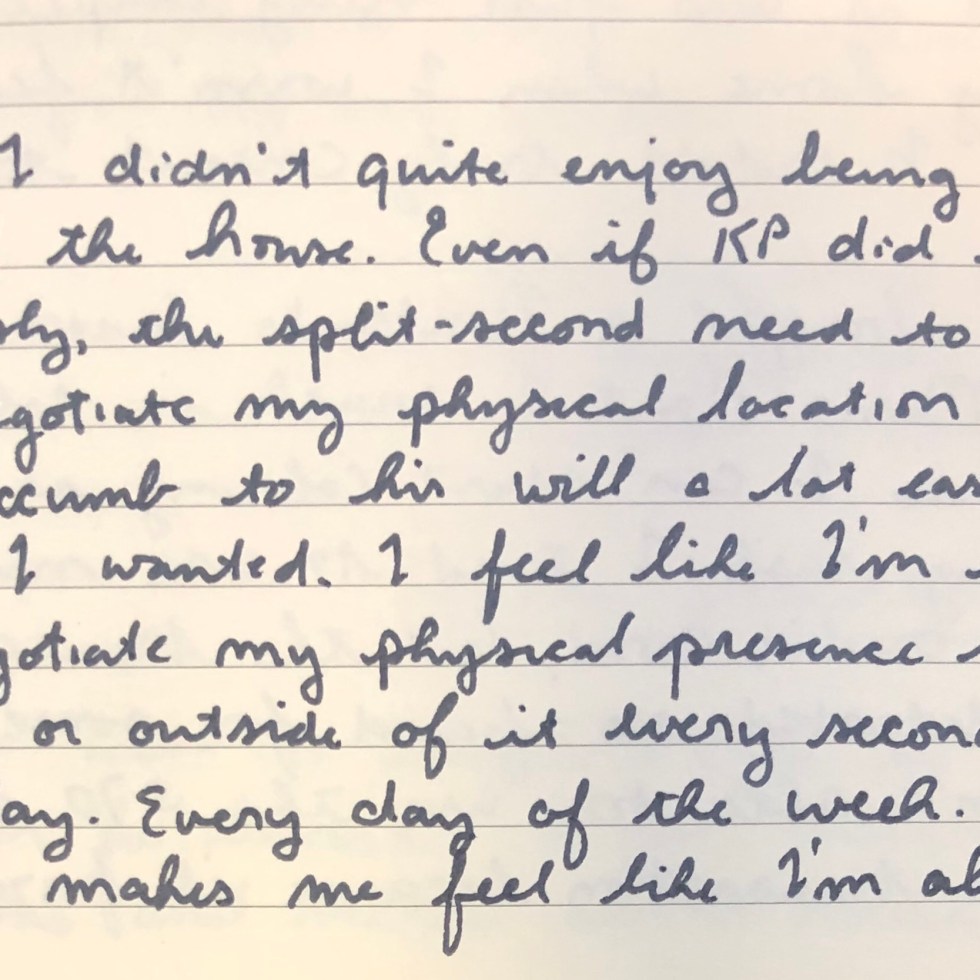 I didn't quite enjoy being
the house. Even if KP did
sly, the split-second need to
gotiate my physical location
ccumb to his will a lot eas
I wanted. I feel like I'm
gotiate my physical presence
or outside of it every second
ay. Every day of the week.
makes me feel like I'm al